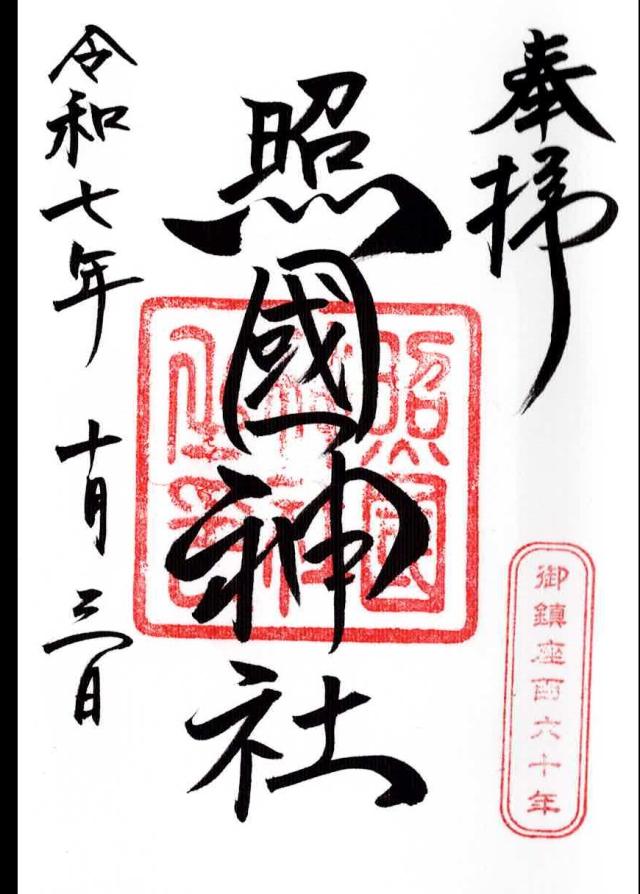 奉拝
御鎮座百六十年
照國神社
照國
神社
令和七年 十月 三日